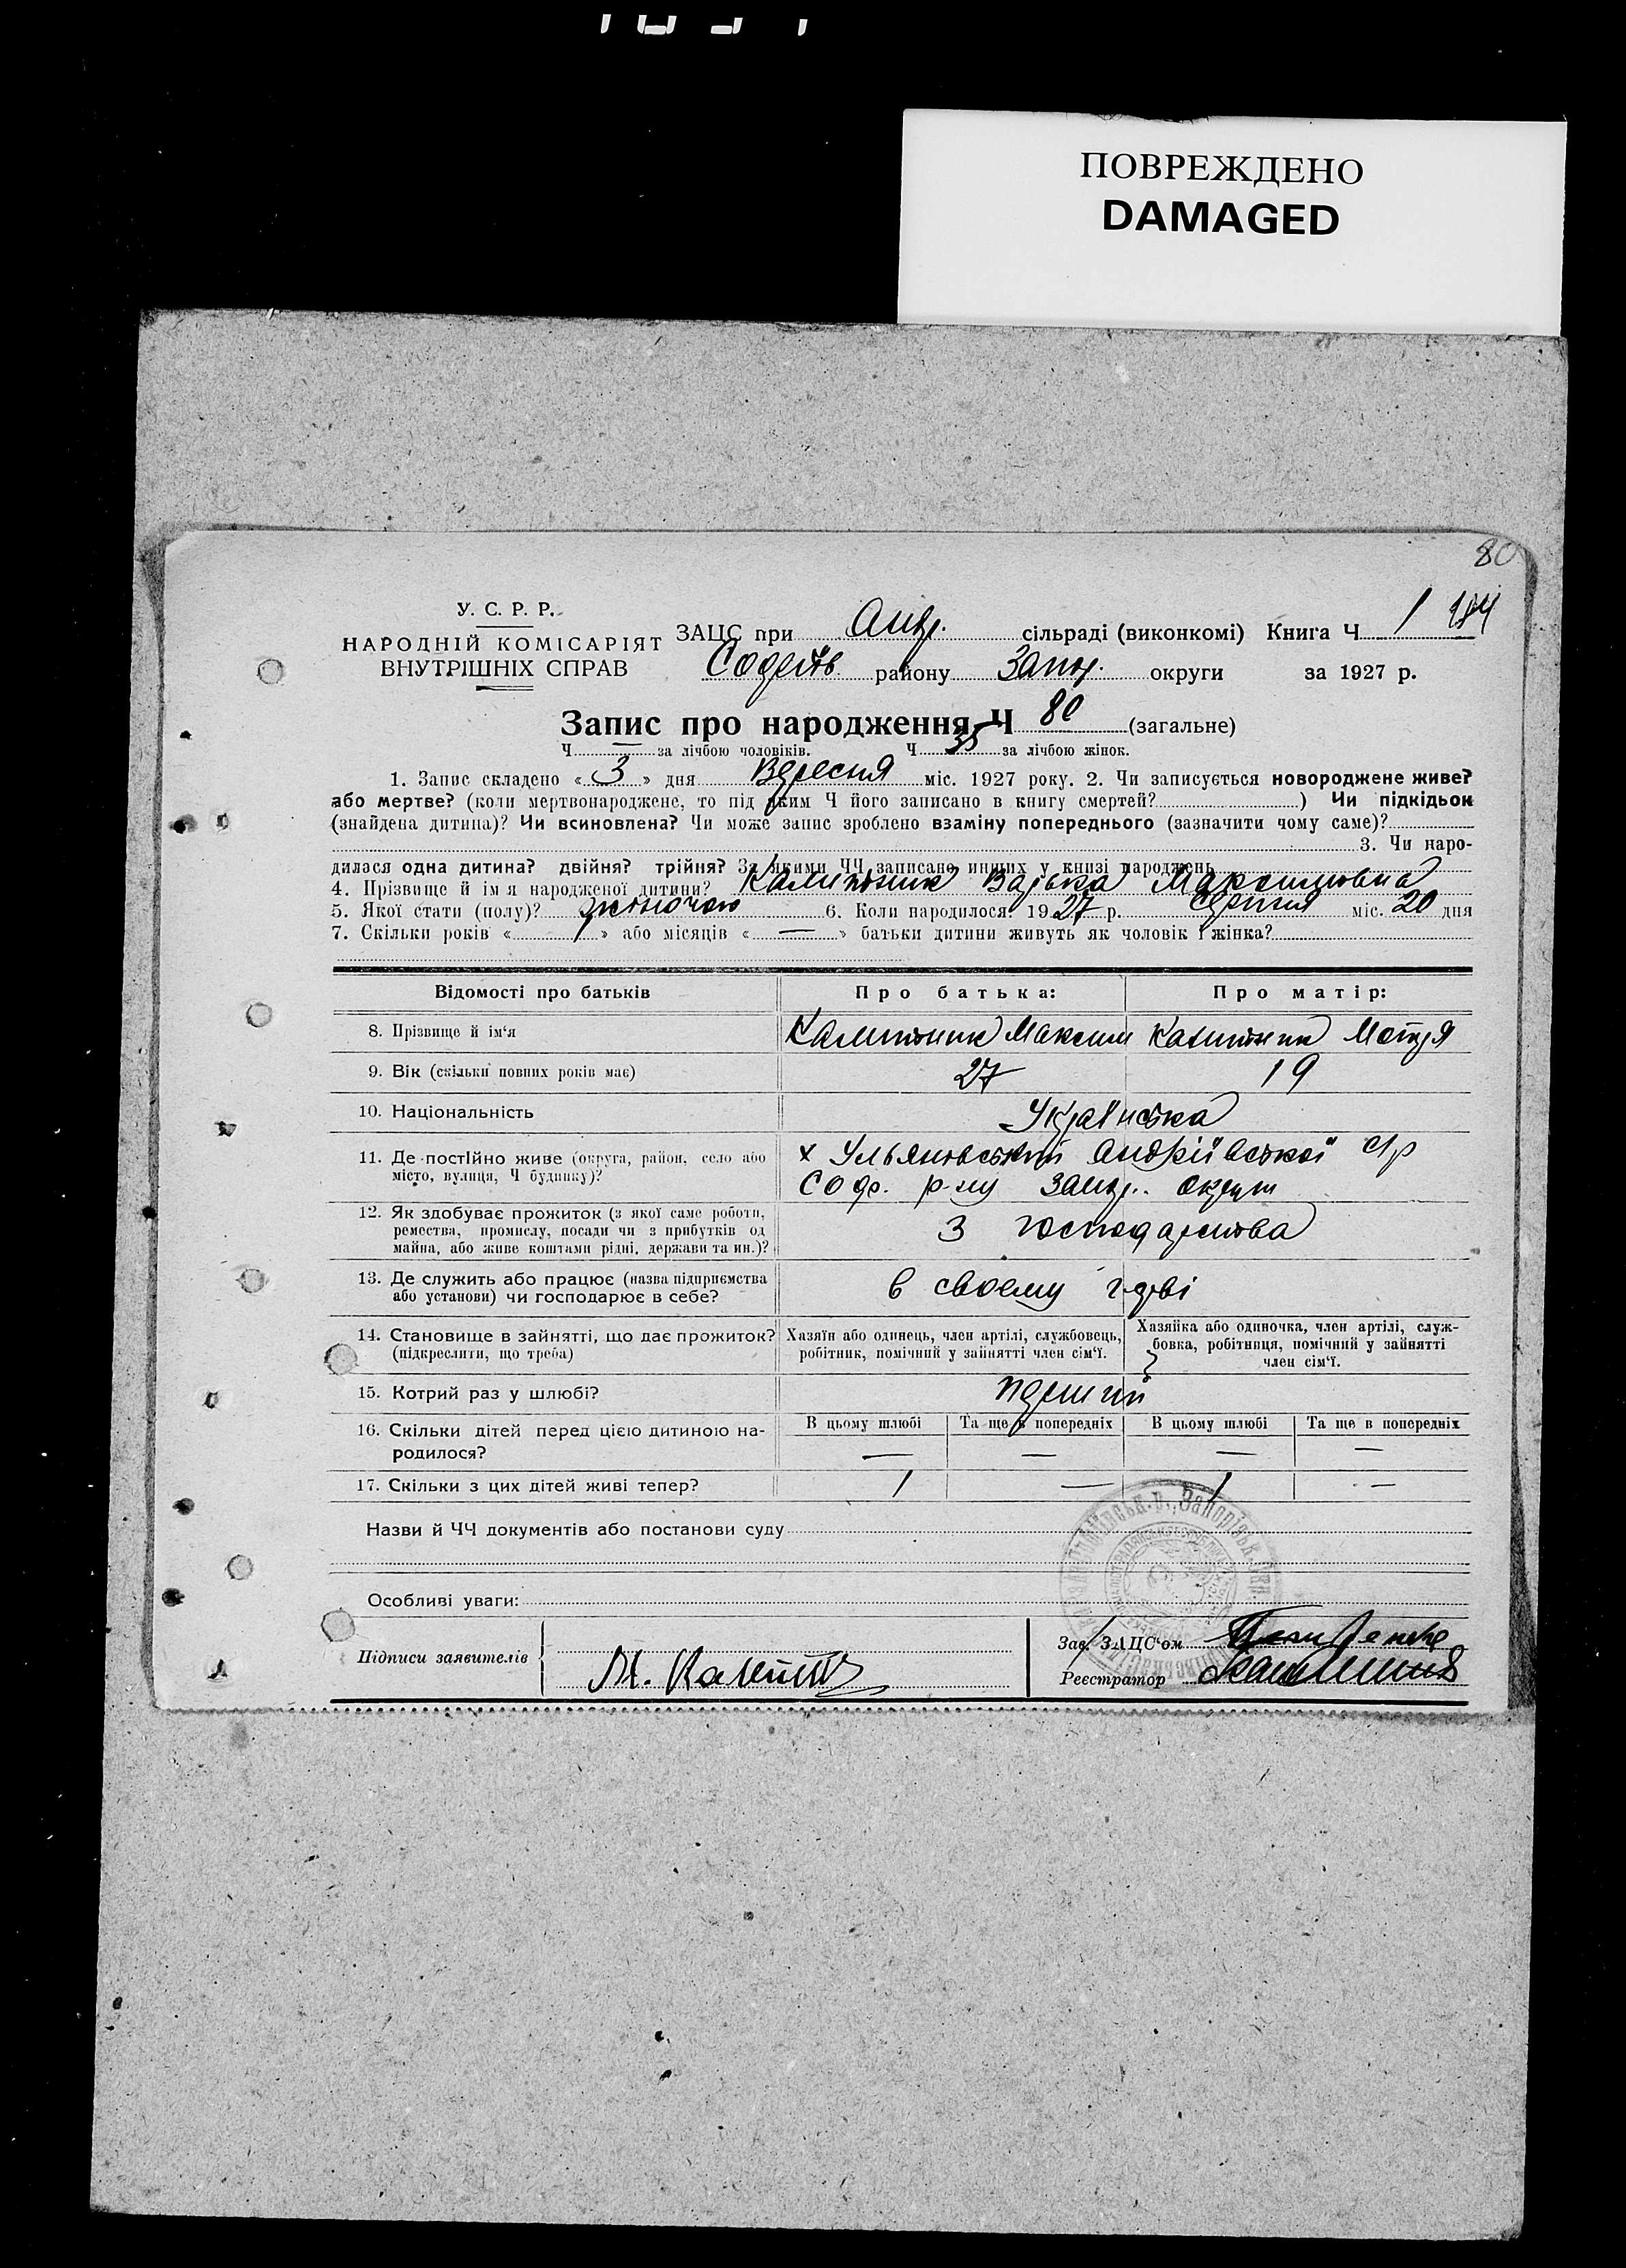 ПОВРЕЖДЕНО
DAMAGED
80
У. С. Р. Р.
НАРОДНІЙ КОМІСАРІЯТ
ВНУТРІШНІХ СПРАВ
ЗАЦС при Андр. сільраді (виконкомі) Книга Ч 1 184
Софіїв району Запор. округи за 1927 р.
Запис про народження Ч 80 (загальне)
Ч — за лічбою чоловіків. Ч 35 за лічбою жінок.
1. Запис складено « 3 » дня Вересня міс. 1927 року. 2. Чи записується новороджене живе?
або мертве? (коли мертвонароджене, то під яким Ч його записано в книгу смертей? ) Чи підкідьок
(знайдена дитина)? Чи всиновлена? Чи може запис зроблено взаміну попереднього (зазначити чому саме)?
3. Чи наро-
дилася одна дитина? двійня? трійня? За якими ЧЧ записано инших у книзі народжень
4. Прізвище й ім'я народженої дитини? Варька Максимовна
5. Якої стати (полу)? жіночою 6. Коли народилося? 1927 р. Серпня міс. 20 дня
7. Скільки років « 1 » або місяців « — » батьки дитини живуть як чоловік і жінка?
Відомості про батьків
Про батька:
Про матір:
8. Прізвище й ім'я
Максим
Мотря
9. Вік (скільки повних років має)
27
19
10. Національність
Українська
11. Де постійно живе (округа, район, село або
місто, вулиця, Ч будинку)?
х Ульяновський Андріївської с/р
Соф. р-ну Запор. округи
12. Як здобуває прожиток (з якої саме роботи,
ремества, промислу, посади чи з прибутків од
майна, або живе коштами рідні, держави та ин.)?
З господарства
13. Де служить або працює (назва підприємства
або установи) чи господарює в себе?
в своему г-дві
14. Становище в зайнятті, що дає прожиток?
(підкреслити, що треба)
Хазяїн або одинець, член артілі, службовець,
робітник, помічний у зайнятті член сім'ї.
Хазяйка або одиночка, член артілі, служ-
бовка, робітниця, помічний у зайнятті
член сім'ї.
15. Котрий раз у шлюбі?
перший
16. Скільки дітей перед цією дитиною на-
родилося?
В цьому шлюбі
Та ще в попередніх
В цьому шлюбі
Та ще в попередніх
— — — —
17. Скільки з цих дітей живі тепер?
1 — 1 —
Назви й ЧЧ документів або постанови суду
Особливі уваги:
Підписи заявителів
Зав. ЗАЦС'ом
Реєстратор